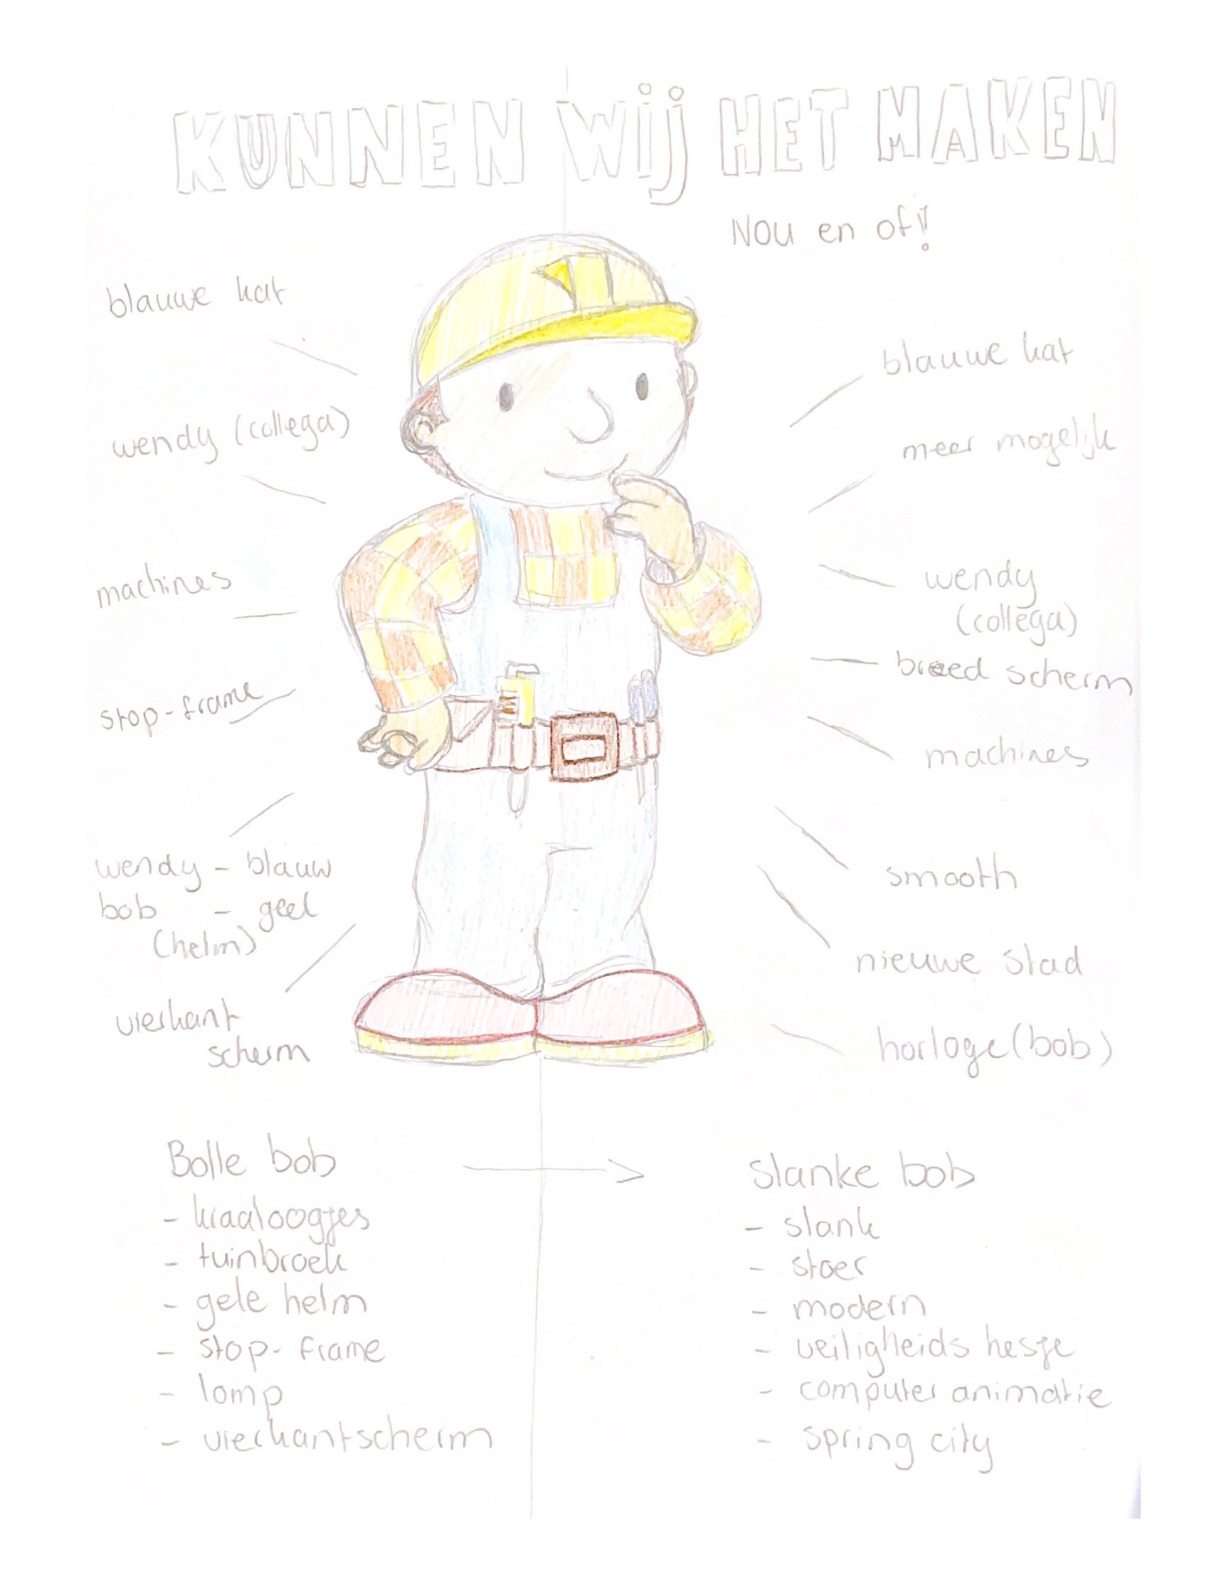 KUNNEN WIJ HET MAKEN
Nou en of!
blauwe kat
wendy (collega)
machines
stop-frame
wendy - blauw
bob - geel
(helm)
vierkant
scherm
blauwe kat
meer mogelijk
wendy
(collega)
breed scherm
machines
smooth
nieuwe stad
horloge (bob)
Bolle bob
- kraaloogjes
- tuinbroek
- gele helm
- stop-frame
- lomp
- vierkantscherm
Slanke bob
- slank
- stoer
- modern
- veiligheids hesje
- computer animatie
- spring city